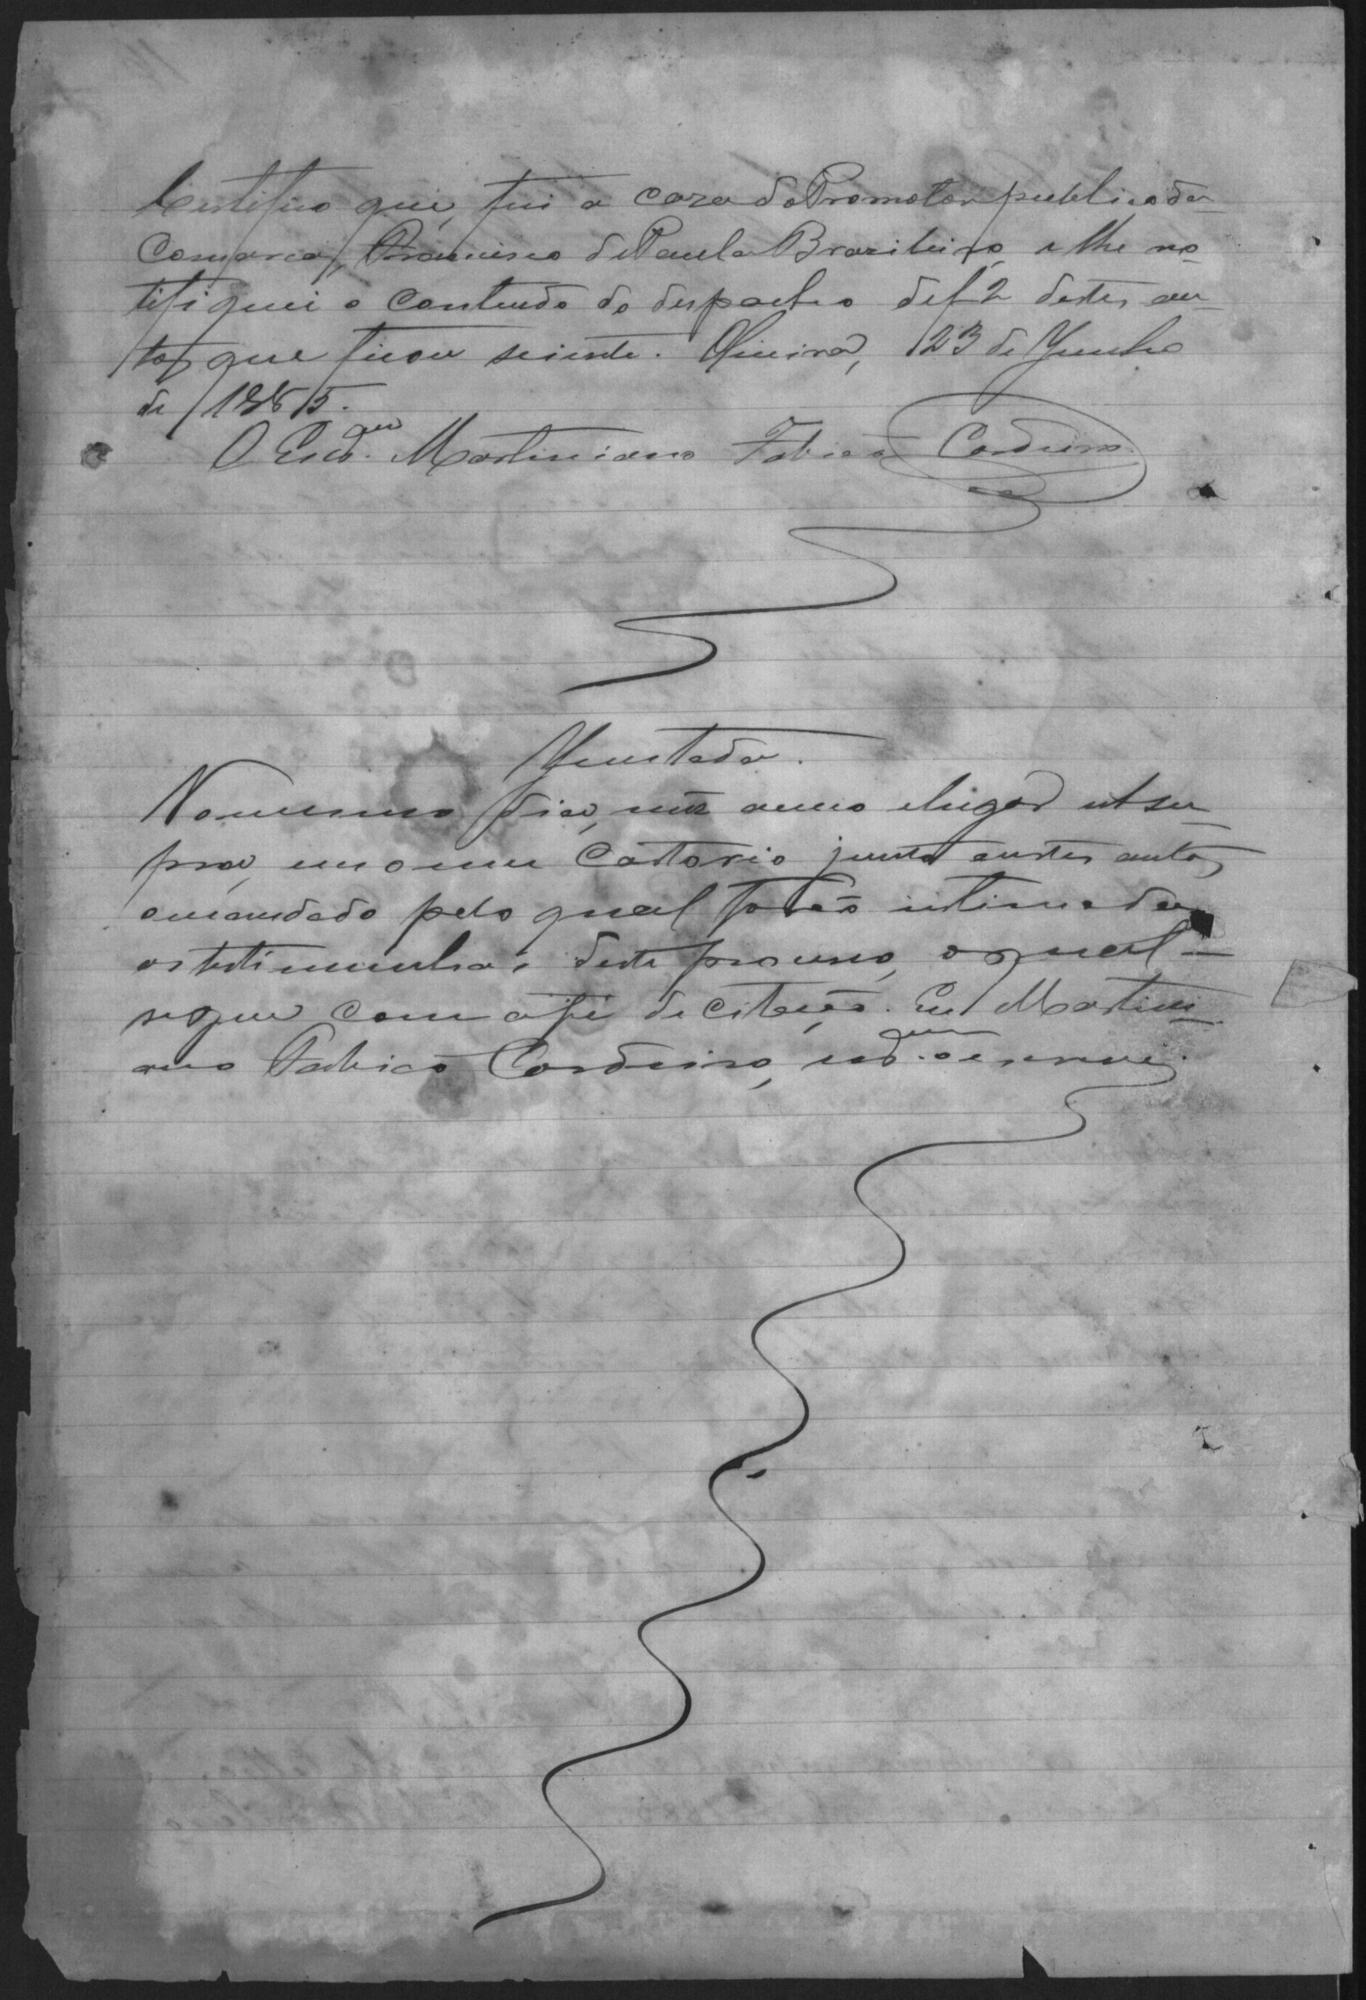 Certifico que, fui a caza do Promotor publico da
Comarca, Francisco de Paula Brazileiro, e lhe no-
tifiquei o contendo do despacho de f 2 destes au-
tos que ficou sciente. Oliveira, 23 de Junho
de 1885.
O Escr.am Martiniano Fabricio Cordeiro
Juntada.
No mesmo dia, mez anno e lugar ut su-
pra, em o meu Cartorio junto a estes autos,
o mandado pelo qual forão intimadas
as testimunhas deste processo, o qual
segue com a fé de citação. Eu Martini-
ano Fabricio Cordeiro, escr.am o escrevi.